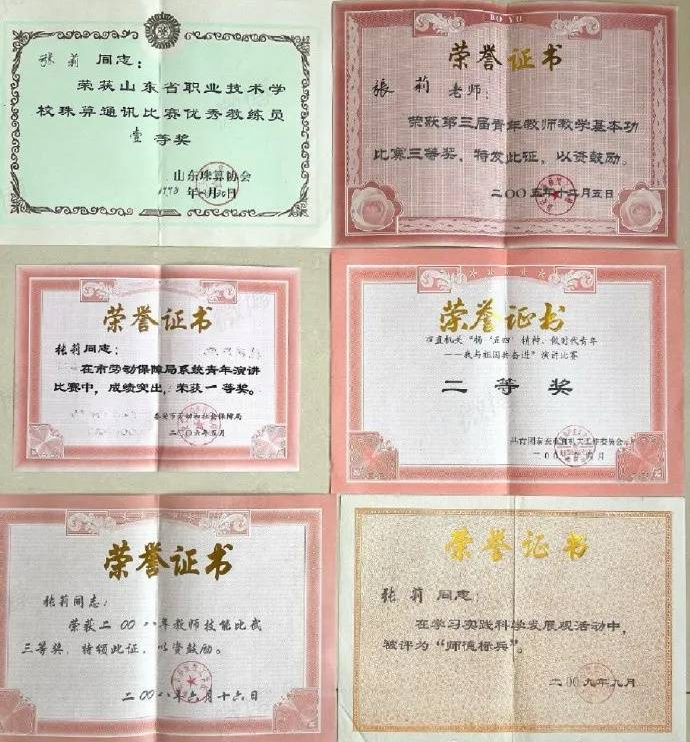 张莉 同志：
荣获山东省职业技术学
校珠算通讯比赛优秀教练员
壹 等奖
山东珠算协会
BO YU
荣誉证书
張莉 老师：
荣获第三届青年教师教学基本功
比赛三等奖。特发此证，以资鼓励。
二〇〇五年十二月五日
荣誉证书
张莉同志：
在市劳动保障局系统青年演讲
比赛中，成绩突出，荣获一等奖。
泰安市劳动和社会保障局
二〇〇六年五月
荣誉证书
市直机关“扬‘五四’精神、做时代青年
——我与祖国共奋进”演讲比赛
二等奖
荣誉证书
张莉同志：
荣获二〇〇八年教师技能比武
三等奖，特颁此证，以资鼓励。
二〇〇八年六月十六日
荣誉证书
张莉 同志
在学习实践科学发展观活动中，
被评为“师德标兵”。
二〇〇九年九月